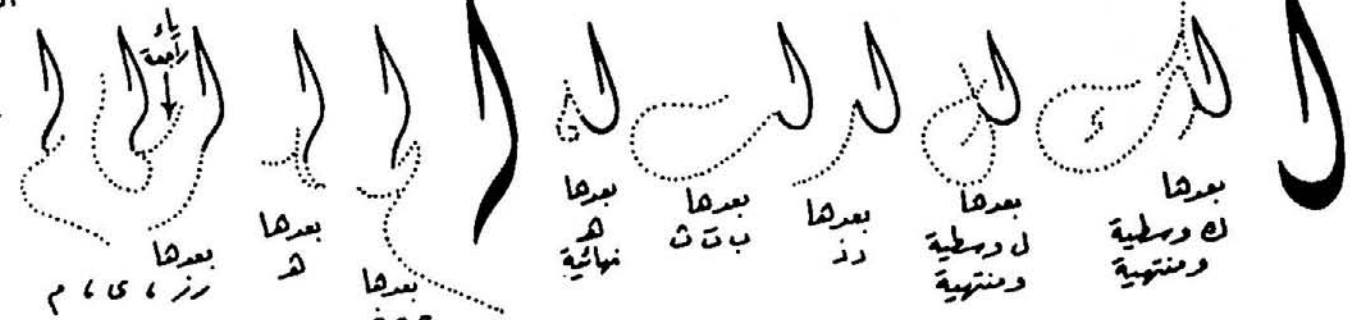 ل
بعدها
ك وسطية
ومنتهية
بعدها
ل وسطية
ومنتهية
بعدها
د ذ
بعدها
ب ت ث
بعدها
هـ
نهائية
بعدها
بعدها
هـ
ياء
راجعة
بعدها
ر ز ، ى ، م